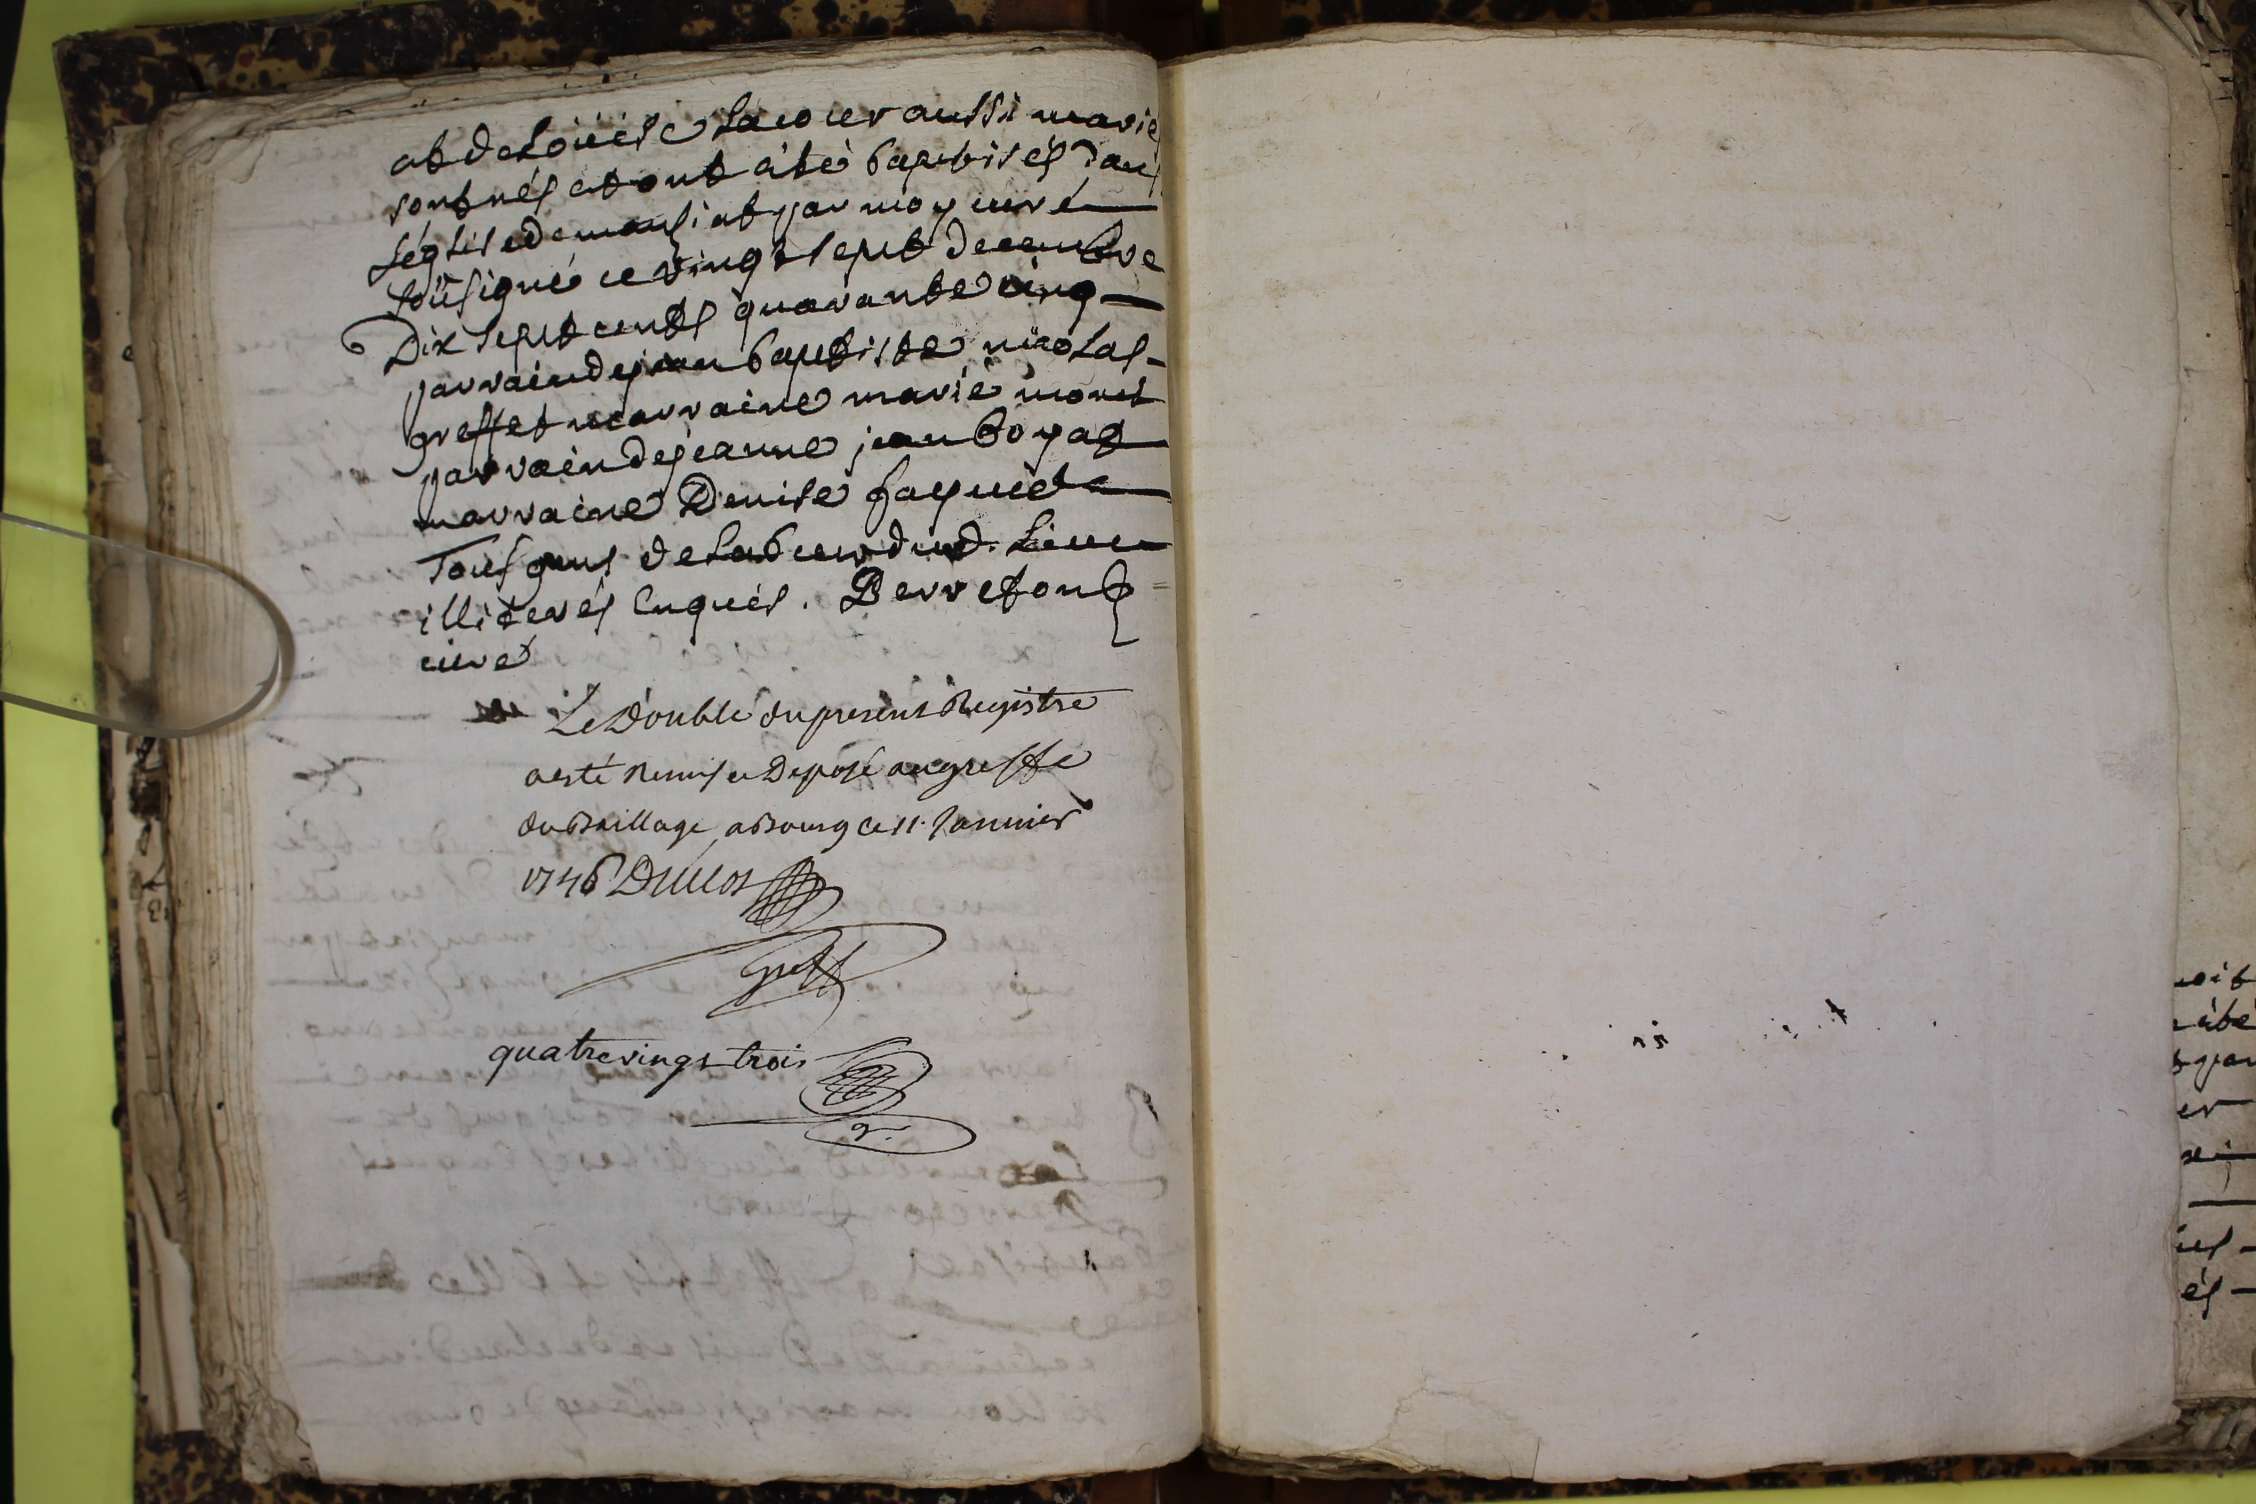 et de Loüise Lacour aussi mariés
sont nés et ont été baptisés dans
L'église de manziat par moy curé
soüssigné ce vingt sept decembre
Dix sept cents quarante cinq
parrain de jean baptiste nicolas
greffet marraine marie monet
parrain de jeanne jean boyat
marraine Denise faguet
Tous gens de labeur dud. Lieu
illiterés Enquis. Perreton
curé
Le Double du present Registre
a esté Remis et Deposé au greffe
du Baillage a Bourg ce 11. Janvier
1746 Duclos
greff
quatre vingt trois
oit
été
par
er
és